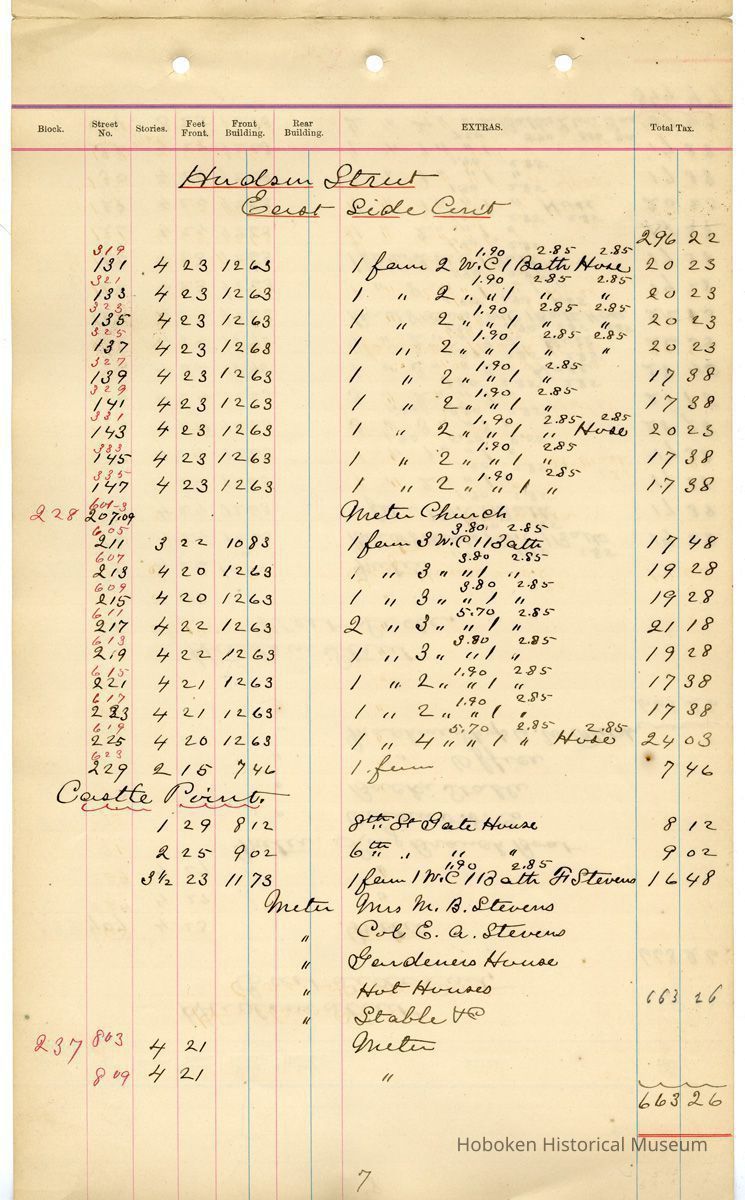 Block. Street No. Stories. Feet Front. Front Building. Rear Building. EXTRAS. Total Tax.
Hudson Street
East Side Con't
296 22
319 1.90 2.85 2.85
131 4 23 12 63 1 fam 2 W.C 1 Bath Hose 20 23
321 1.90 2.85 2.85
133 4 23 12 63 1 " 2 " " 1 " " 20 23
323 1.90 2.85 2.85
135 4 23 12 63 1 " 2 " " 1 " " 20 23
325 1.90 2.85 2.85
137 4 23 12 63 1 " 2 " " 1 " " 20 23
327 1.90 2.85
139 4 23 12 63 1 " 2 " " 1 " 17 38
329 1.90 2.85
141 4 23 12 63 1 " 2 " " 1 " 17 38
331 1.90 2.85 2.85
143 4 23 12 63 1 " 2 " " 1 " Hose 20 23
333 1.90 2.85
145 4 23 12 63 1 " 2 " " 1 " 17 38
335 1.90 2.85
147 4 23 12 63 1 " 2 " " 1 " 17 38
601-3
228 207.09 Meter Church
605 3.80 2.85
211 3 22 10 83 1 fam 3 W.C 1 Bath 17 48
607 3.80 2.85
213 4 20 12 63 1 " 3 " " 1 " 19 28
609 3.80 2.85
215 4 20 12 63 1 " 3 " " 1 " 19 28
611 5.70 2.85
217 4 22 12 63 2 " 3 " " 1 " 21 18
613 3.80 2.85
219 4 22 12 63 1 " 3 " " 1 " 19 28
615 1.90 2.85
221 4 21 12 63 1 " 2 " " 1 " 17 38
617 1.90 2.85
223 4 21 12 63 1 " 2 " " 1 " 17 38
619 5.70 2.85 2.85
225 4 20 12 63 1 " 4 " " 1 " Hose 24 03
623
229 2 15 7 46 1 fam 7 46
Castle Point.
1 29 8 12 8th St Gate House 8 12
2 25 9 02 6th " " " 9 02
1.90 2.85
3½ 23 11 73 1 fam 1 W.C 1 Bath F. Stevens 16 48
Meter Mrs M. B. Stevens
" Col E. A. Stevens
" Gardeners House
" Hot Houses 663 26
" Stable &c
237 803 4 21 Meter
809 4 21 "
663 26
Hoboken Historical Museum
7